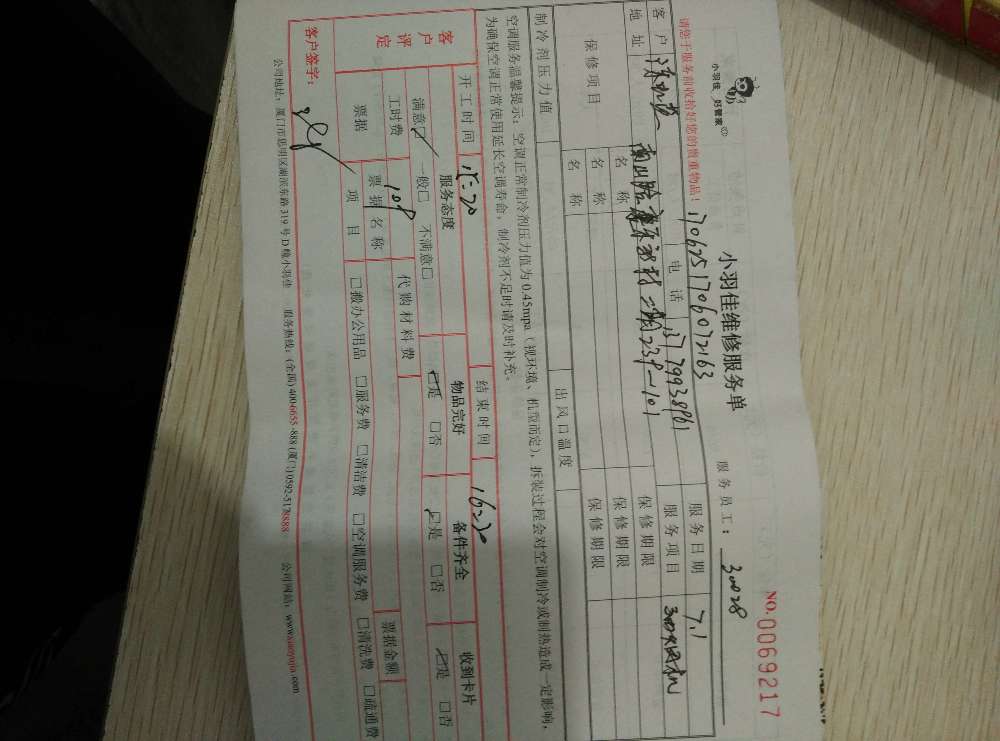 小羽佳 好管家
小羽佳维修服务单
NO.0069217
服务员工：30028
请您于服务前收拾好您的贵重物品！
1706251706072163
客户 电话 13779938961 服务日期 7.1
地址 238-101 服务项目
保修项目 名称 保修期限
名称 保修期限
名称 保修期限
制冷剂压力值 出风口温度
空调服务温馨提示：空调正常制冷剂压力值为0.45mpa（视环境、机型而定），拆装过程会对空调制冷或制热造成一定影响，
为确保空调正常使用延长空调寿命，制冷剂不足时请及时补充。
开工时间 15:20 结束时间 16:20
客户评定 服务态度 物品完好 备件齐全 收到卡片
满意☑ 一般□ 不满意□ ☑是 □否 ☑是 □否 ☑是 □否
工时费 108 代购材料费
票据 票据名称 票据金额
项目 □搬办公用品 □服务费 □清洁费 □空调服务费 □清洗费 □疏通费
客户签字：
公司地址：厦门市思明区湖滨东路319号D幢小羽佳 服务热线：(全国)400-6655-888 (厦门)0592-5178888 公司网站：www.xiaoyujia.com